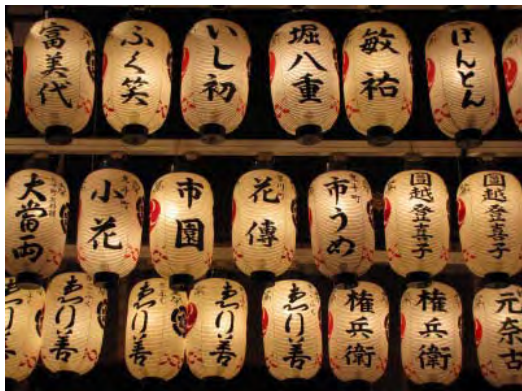 富美代
ふく笑
いし初
堀八重
敏祐
ぼんとん
大當両
小花
市園
花傳
市うめ
圓越登喜子
圓越登喜子
ゑり善
ゑり善
ゑり善
ゑり善
ゑり善
権兵衛
権兵衛
元奈古